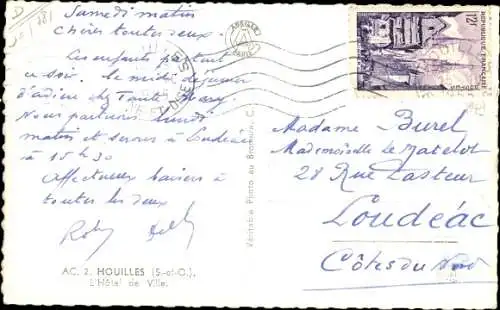 Samedi matin
Chères toutes deux.
Les enfants partent
ce soir. Ce midi déjeuner
d'adieu chez Tante Mary.
Nous partirons lundi
matin et serons à Loudéac
à 15h30
Affectueux baisers à
toutes les deux
AC. 2. HOUILLES (S.-et-O.).
L'Hôtel de Ville.
Véritable Photo au Bromure, C.
12F
REPUBLIQUE FRANÇAISE
Madame Burel
Mademoiselle Le Matelot
28 Rue Pasteur
Loudéac
Côtes du Nord